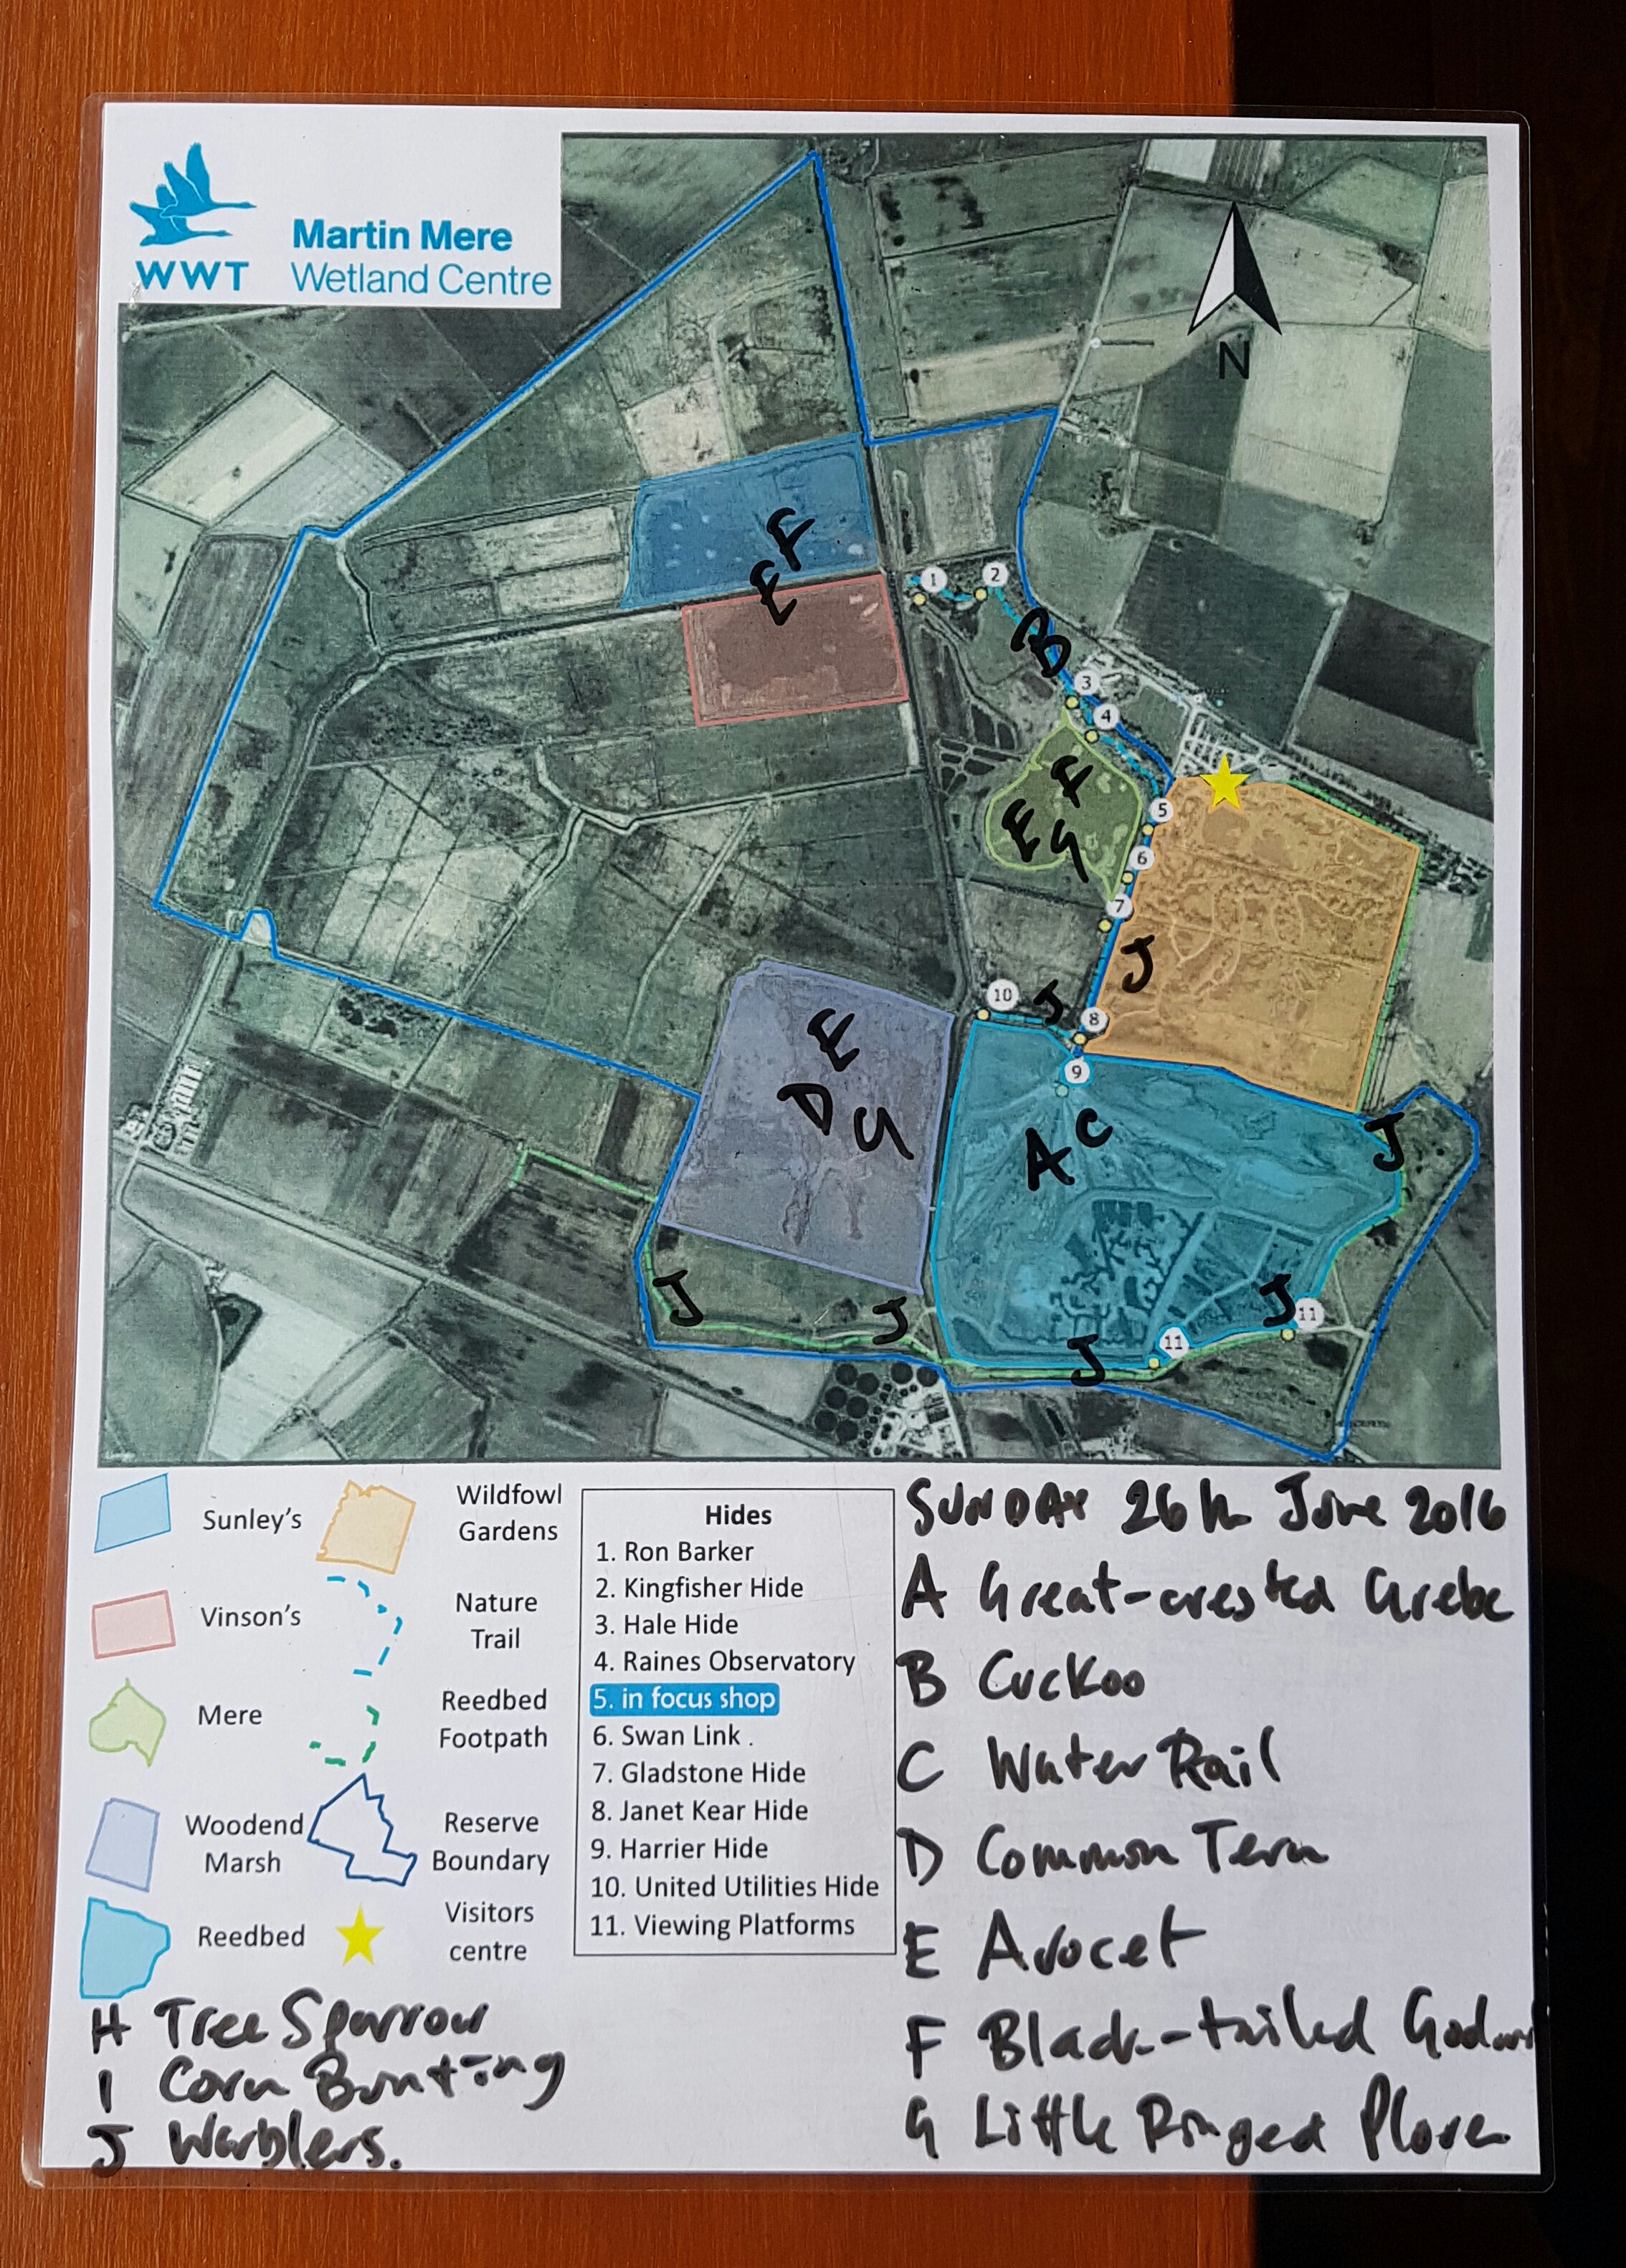 WWT
Martin Mere
Wetland Centre
N
F
E
1
2
B
3
4
F
E
G
5
6
7
J
10
J
8
9
E
D
G
A
C
J
J
J
J
J
11
11
Sunley's
Vinson's
Mere
Woodend
Marsh
Reedbed
Wildfowl
Gardens
Nature
Trail
Reedbed
Footpath
Reserve
Boundary
Visitors
centre
Hides
1. Ron Barker
2. Kingfisher Hide
3. Hale Hide
4. Raines Observatory
5. in focus shop
6. Swan Link .
7. Gladstone Hide
8. Janet Kear Hide
9. Harrier Hide
10. United Utilities Hide
11. Viewing Platforms
SUNDAY 26th June 2016
A Great-crested Grebe
B Cuckoo
C Water Rail
D Common Tern
E Avocet
F Black-tailed
G Little Ringed Plover
H Tree Sparrow
I Corn Bunting
J Warblers.